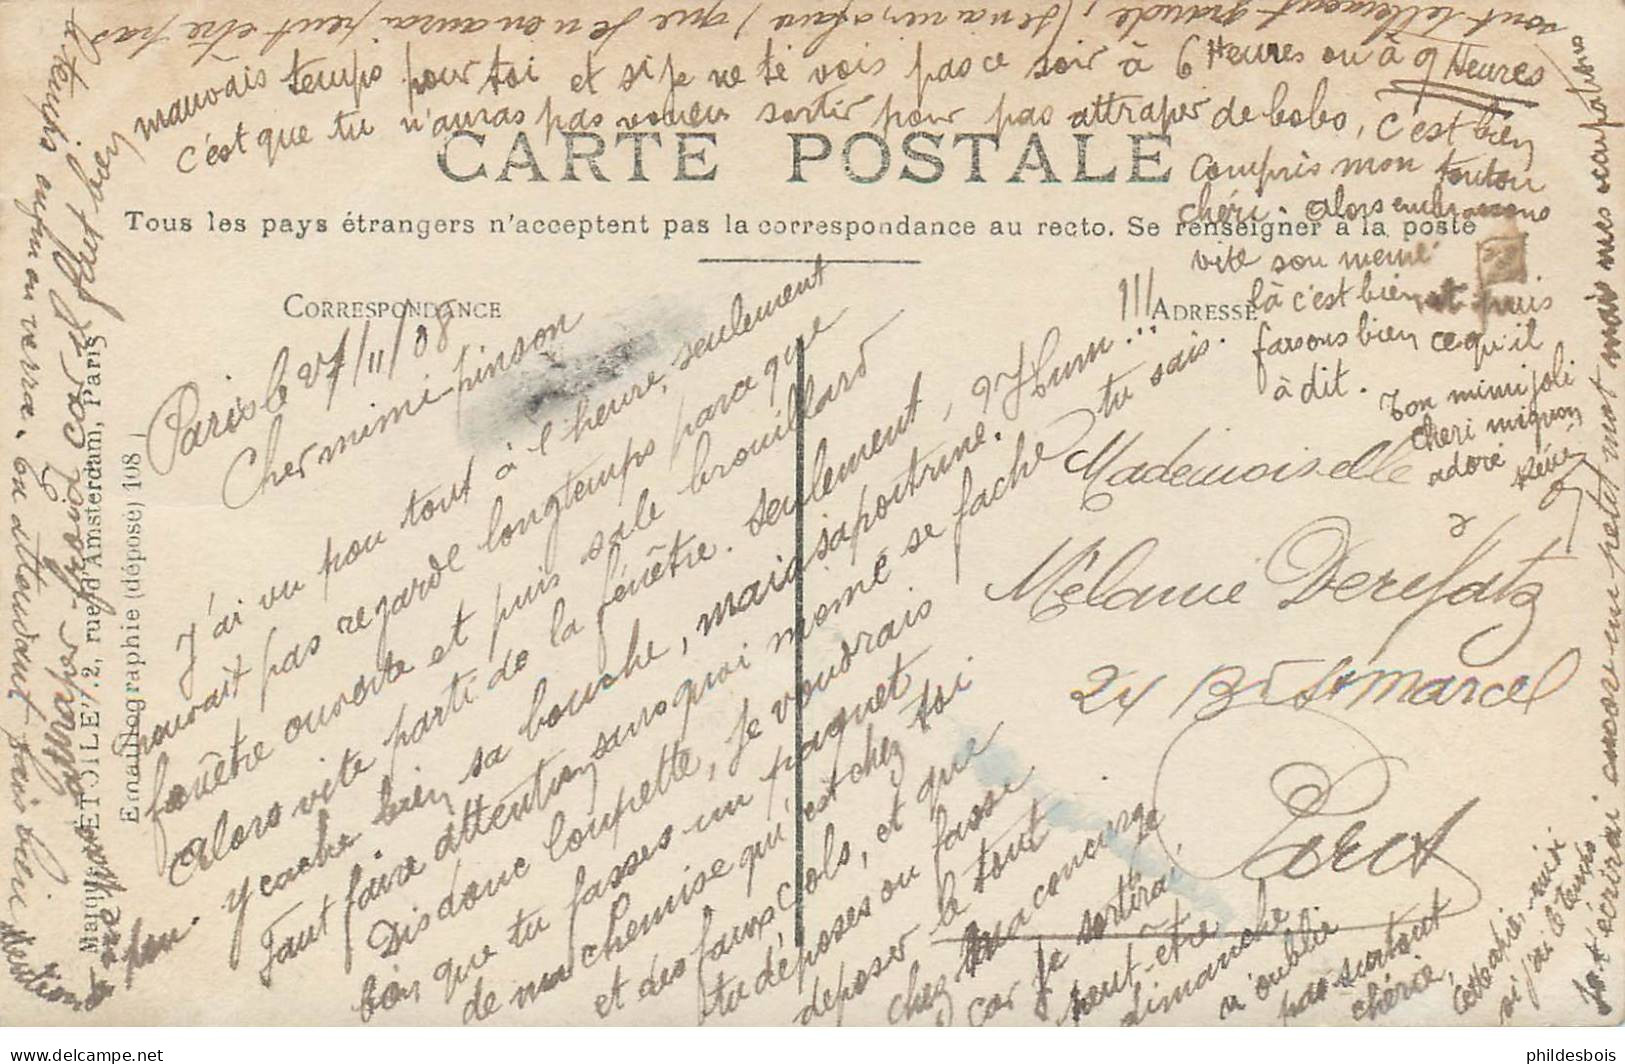 CARTE POSTALE
Tous les pays étrangers n'acceptent pas la correspondance au recto. Se renseigner à la poste
CORRESPONDANCE
ADRESSE
Paris le 27/11/08
Cher mimi-pinson
J'ai vu ton tout à l'heure, seulement
pouvait pas regarde longtemps parce que
fenêtre ouverte et puis sale brouillard
Alors vite parti de la fenêtre. Seulement,
y cache bien sa bouche, mais sa poitrine. Hum!!
Faut faire attention sans quoi meme se fache tu sais. !!!
Dis donc loupette, je voudrais
bien que tu fasses un paquet
de ma chemise qui est chez toi
et des faux cols, et que
tu déposes ou fasse
deposer le tout
chez ma concierge
car je sortirai
peut-être
dimanche
n'oublie
pas surtout
chérie,
cette après-midi
si j'ai le temps
Je t'écrirai encore un petit mot mais mes occupations
sont tellement grande, (de na mes afaire) que Je n'en aurai peut être pas
le temps enfin on verra. En attendant fais bien
Faut bien
mauvais temps pour toi et si je ne te vois pas ce soir à 6 Heures ou à 9 Heures
c'est que tu n'auras pas voulu sortir pour pas attraper de bobo, c'est bien
compris mon toutou
chéri. Alors embrassons
vite son meme
là c'est bien et puis
faisons bien ce qu'il
à dit.
Ton mimi joli
cheri mignon
adoré
Mademoiselle
Mélanie Derefatz
24 Bd St Marcel
Paris
Marque "ÉTOILE", 2, rue d'Amsterdam, Paris
Émaillographie (déposé) 108
phildesbois